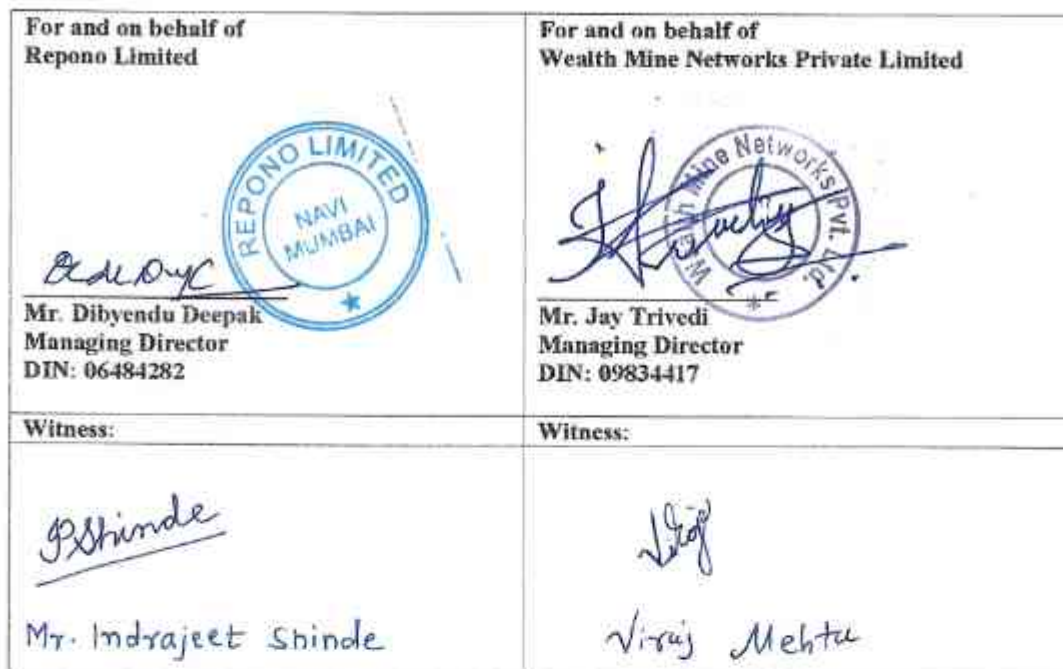 For and on behalf of
Repono Limited
REPONO LIMITED
NAVI
MUMBAI
Mr. Dibyendu Deepak
Managing Director
DIN: 06484282
For and on behalf of
Wealth Mine Networks Private Limited
Wealth Mine Networks Pvt. Ltd.
Mr. Jay Trivedi
Managing Director
DIN: 09834417
Witness:
Witness:
PShinde
Mr. Indrajeet Shinde
Viraj Mehta